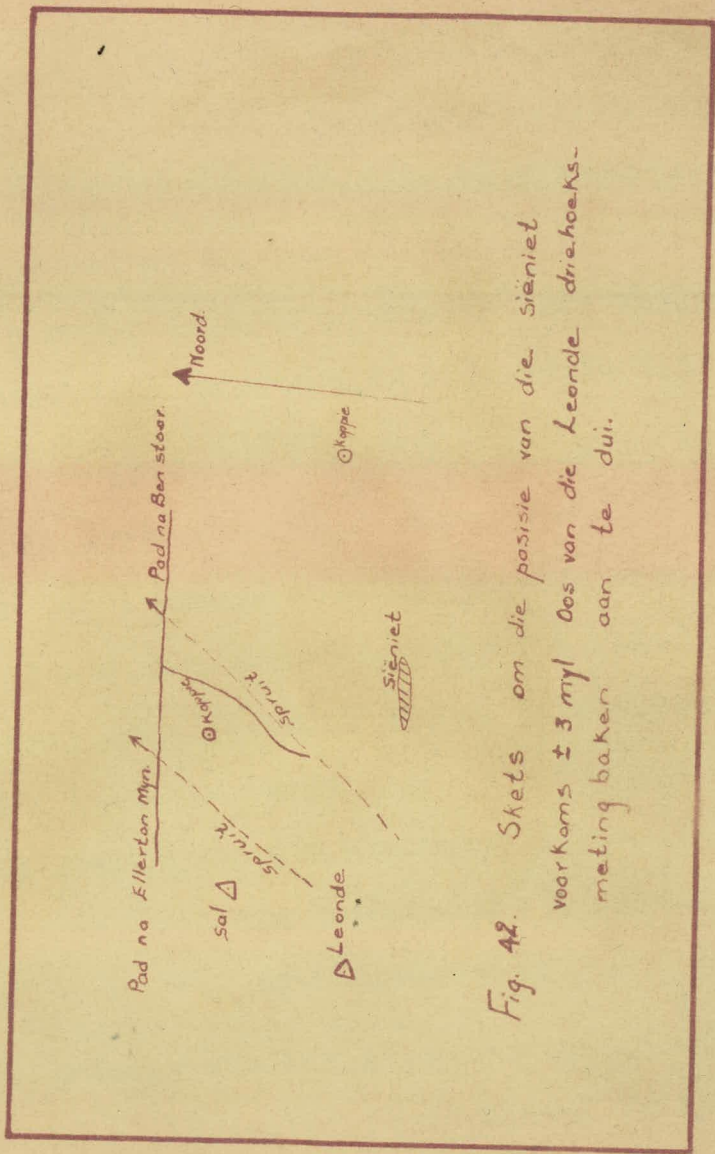 Pad na Ellerton Myn.
Pad na Ben stoor.
Noord.
Sal
Koppie
Koppie
spruit
spruit
Leonde
Siëniet
Fig. 42. Skets om die posisie van die siëniet
voorkoms ± 3 myl Oos van die Leonde driehoeks-
meting baken aan te dui.